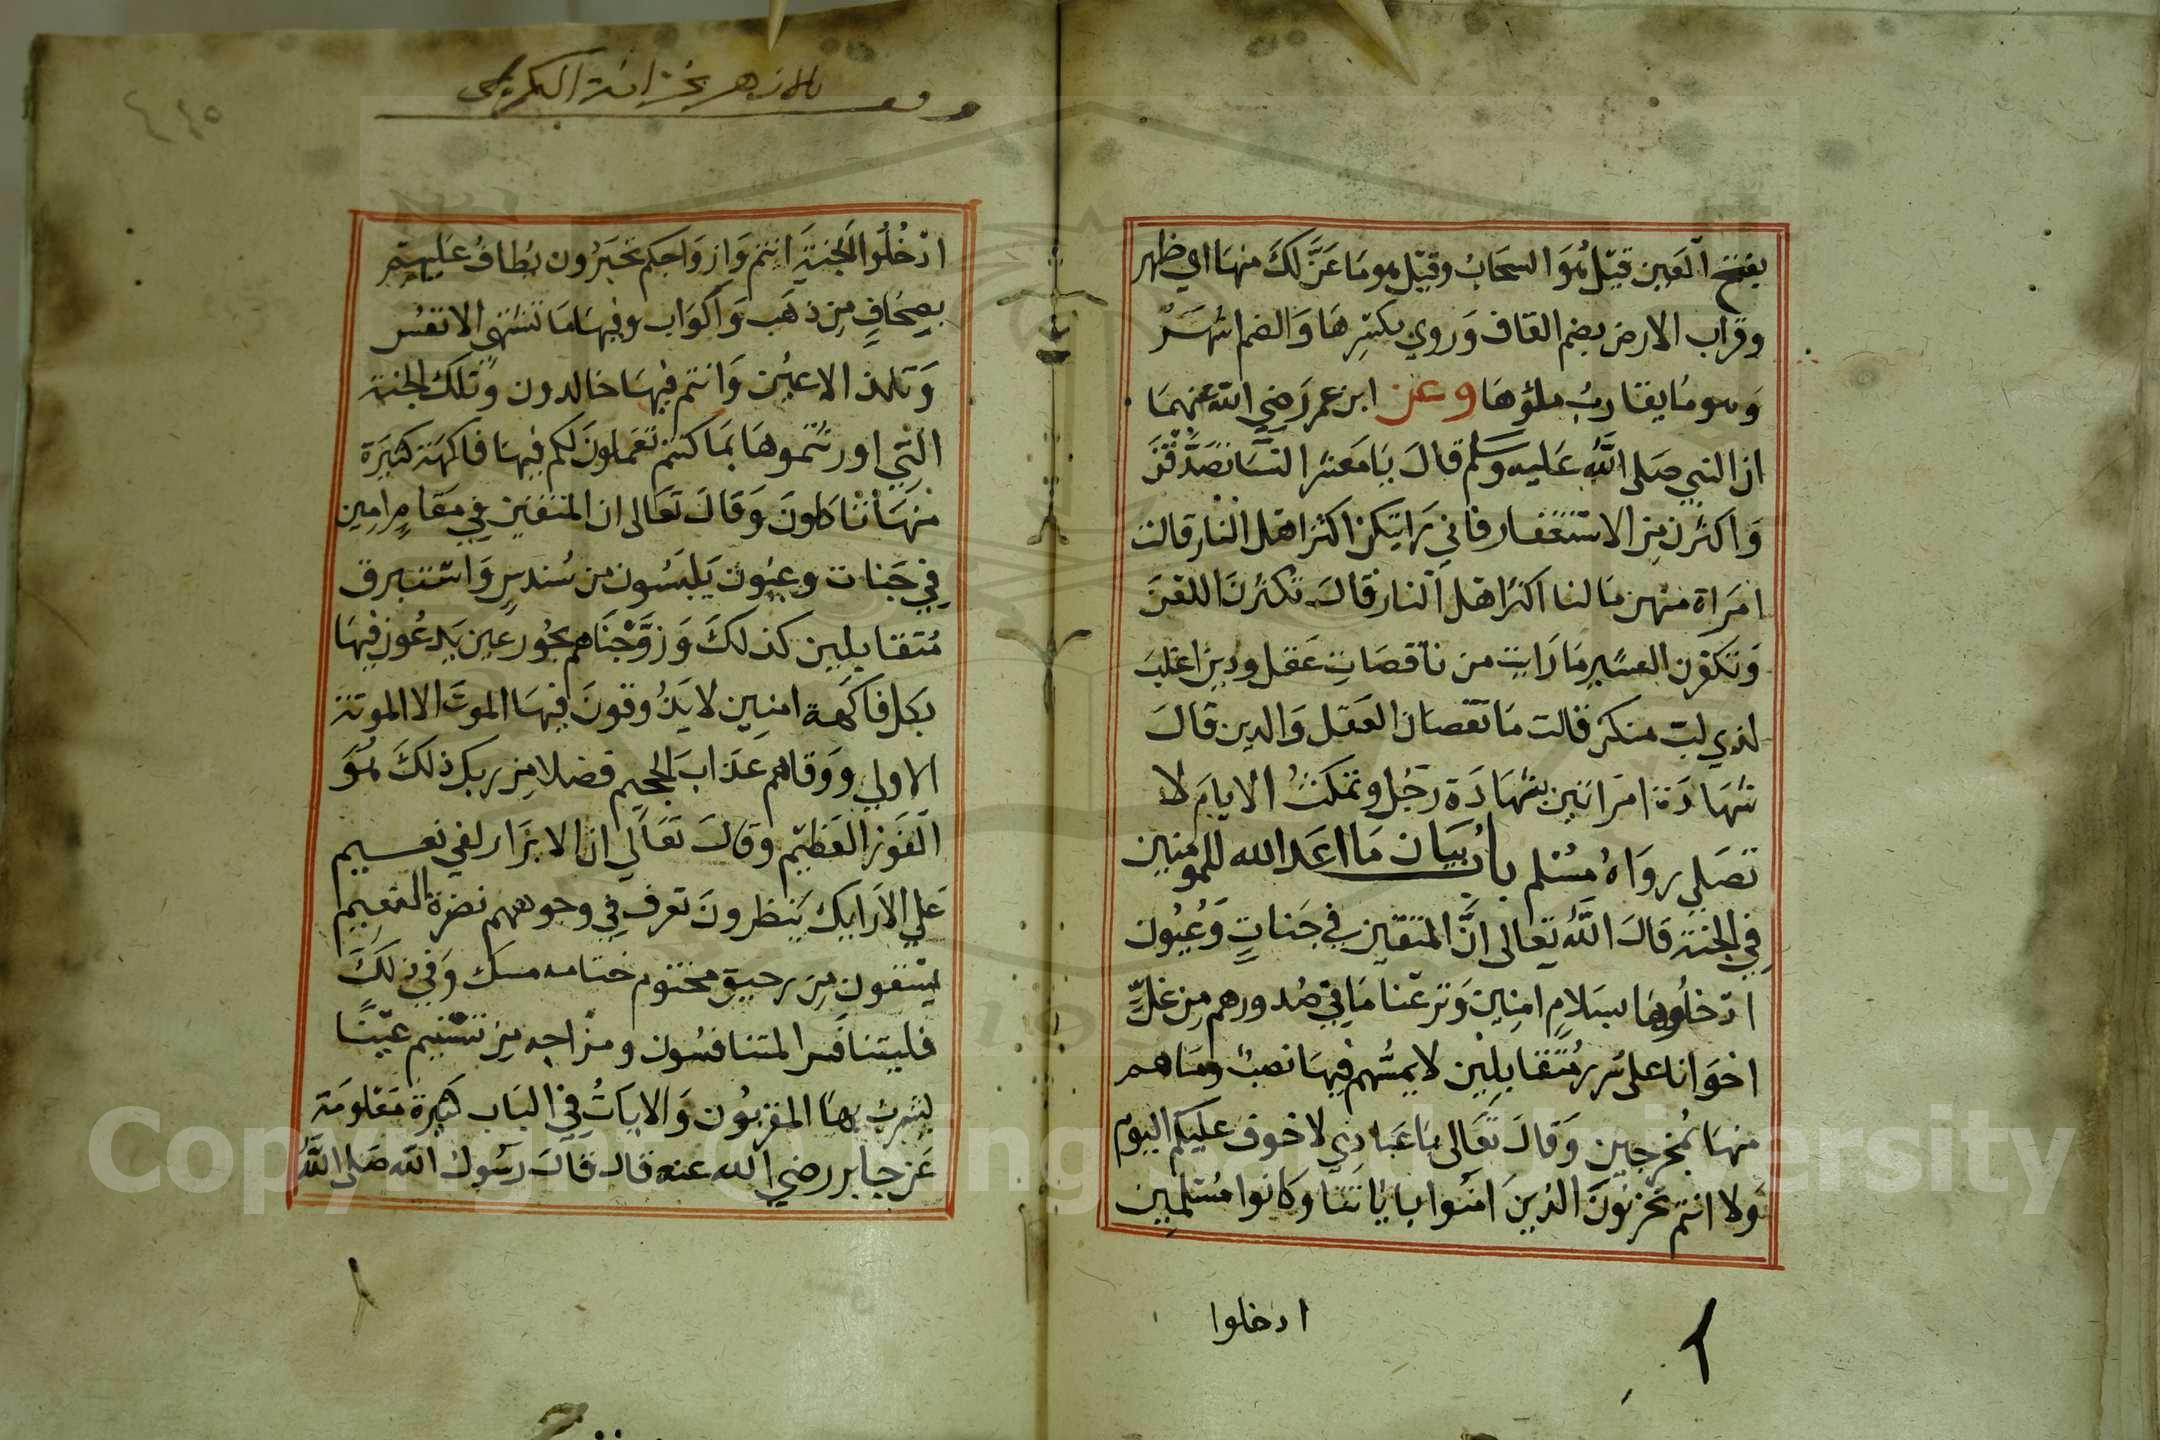 بفتح العين قيل هو السحاب وقيل هو ما عَنَّ لكَ منها اي ظهر
وقراب الارض بضم القاف وروي بكسرها والضم اشهر
وهو ما يقارب ملؤها وعن ابن عمر رضي الله عنهما
ان النبي صلى الله عليه وسلم قال يا معشر النسا تصدقن
واكثرن من الاستغفار فاني رايتكن اكثر اهل النار قالت
امراة منهن مالنا اكثر اهل النار قال تكثرن اللعن
وتكفرن العشير ما رايت من ناقصات عقل ودين اغلب
لذي لب منكن قالت ما نقصان العقل والدين قال
شهادة امراتين بشهادة رجل وتمكث الايام لا
تصلي رواه مسلم باب بيان ما اعد الله للمومنين
في الجنة قال الله تعالى انَّ المتقين في جناتٍ وعُيُون
ادخلُوها بسَلامٍ امنين ونزعنا ما في صُدورهم من غلٍّ
اخوانا على سُررٍ مُتقابلين لا يمسُّهم فيها نصبٌ وما هم
منها بُمخرجين وقال تعالى يا عبادي لا خوف عليكم اليوم
ولا انتم تحزنون الذين امنُوا باياتنا وكانوا مُسلمين
ادخلوا
وقف بالازهر بخزانة
٤١٥
ادخُلُوا الجنة انتم وازواجكم تحبرُون يُطافُ عليهم
بصحافٍ من ذهب واكواب وفيها ما تشتهي الانفس
وتلذ الاعيُن وانتم فيها خالدون وتلك الجنة
التي اورثتموها بما كنتم تعملون لكم فيها فاكهة كثيرة
منها تاكلون وقال تعالى ان المتقين في مقامٍ امين
في جنات وعيون يلبسُون من سُندسٍ واستبرق
مُتقابلين كذلك وزوَّجناهم بحُور عين يدعُون فيها
بكل فاكهة امنين لا يذُوقون فيها الموت الا الموتة
الاولي ووقاهم عذاب الجحيم فضلا من ربك ذلك هُوَ
الفوز العظيم وقال تعالي ان الابرار لفي نعيم
علي الارايك ينظرون تعرف في وجوههم نضرة النعيم
يسقون من رحيق مختوم ختامه مسك وفي ذلك
فليتنافس المتنافسُون ومزاجه من تسنيم عينًا
يشرب بها المقربُون والاياتُ في الباب كثيرة معلومة
عن جابر رضي الله عنه قال قال رسول الله صلى اللهُ